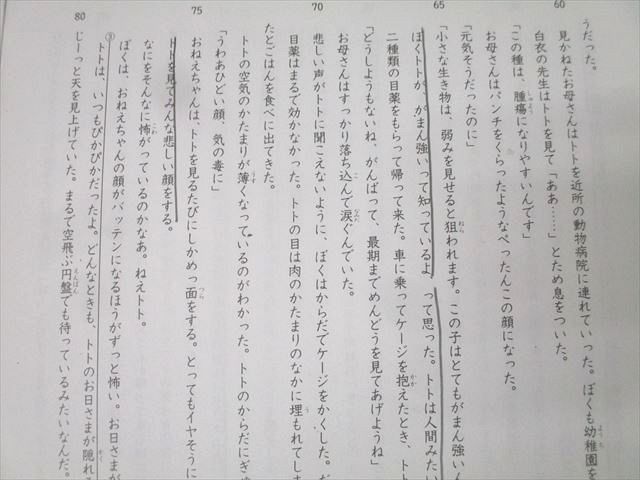 60
うだった。
見かねたお母さんはトトを近所の動物病院に連れていった。ぼくも幼稚園を
白衣の先生はトトを見て「ああ……」とため息をついた。
「この種は、腫瘍になりやすいんです」
お母さんはパンチをくらったようなぺったんこの顔になった。
65
「元気そうだったのに」
「小さな生き物は、弱みを見せると狙われます。この子はとてもがまん強いん
ぼくトトが、がまん強いって知っているよ、って思った。トトは人間みたい
二種類の目薬をもらって帰って来た。車に乗ってケージを抱えたとき、トト
「どうしようもないね、がんばって、最期までめんどうを見てあげようね」
70
お母さんはすっかり落ち込んで涙ぐんでいた。
悲しい声がトトに聞こえないように、ぼくはからだでケージをかくした。だ
目薬はまるで効かなかった。トトの目は肉のかたまりのなかに埋もれてしま
たとごはんを食べに出てきた。
トトの空気のかたまりが薄くなっているのがわかった。トトのからだにぎゅ
75
「うわあひどい顔、気の毒に」
おねえちゃんは、トトを見るたびにしかめっ面をする。とってもイヤそうに
トトを見てみんな悲しい顔をする。
なにをそんなに怖がっているのかなあ。ねえトト。
ぼくは、おねえちゃんの顔がバッテンになるほうがずっと怖い。お日さまが
80
③トトは、いつもぴかぴかだったよ。どんなときも、トトのお日さまが隠れる
じーっと天を見上げていた。まるで空飛ぶ円盤でも待っているみたいなんだ。